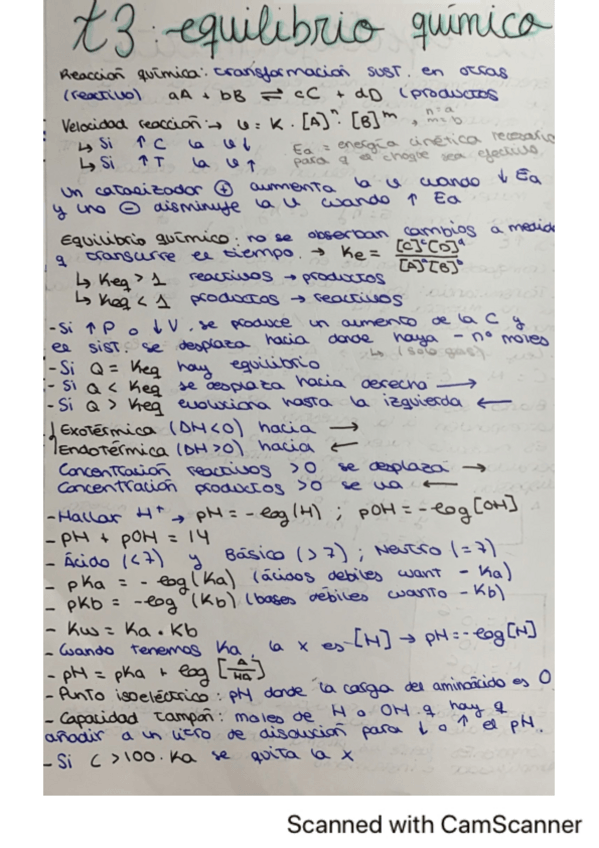 t3: equilibrio químico
Reacción química: transformación sust. en otras
(reactivo) aA + bB ⇌ cC + dD (productos
Velocidad reacción: → v = K · [A]ⁿ · [B]ᵐ , n=a m=b
↳ Si ↑ C la v ↓ Ea = energía cinética necesaria
↳ Si ↑ T la v ↑ para q el choque sea efectivo
Un catalizador ⊕ aumenta la v cuando ↓ Ea
y uno ⊖ disminuye la v cuando ↑ Ea
Equilibrio químico: no se observan cambios a medida
q transcurre el tiempo. → Ke = [C]ᶜ[D]ᵈ / [A]ᵃ[B]ᵇ
↳ Keq > 1 reactivos → productos
↳ Keq < 1 productos → reactivos
- Si ↑ P o ↓ V, se produce un aumento de la C y
el sist. se desplaza hacia donde haya - nº moles
↳ (solo gas)
- Si Q = Keq hay equilibrio
- Si Q < Keq se desplaza hacia derecha →
- Si Q > Keq evoluciona hasta la izquierda ←
Exotérmica (DH<0) hacia →
Endotérmica (DH>0) hacia ←
Concentración reactivos >0 se desplaza →
Concentración productos >0 se va ←
- Hallar H⁺ → pH = -log(H) ; pOH = -log[OH]
- pH + pOH = 14
- Ácido (<7) y Básico (>7) ; Neutro (=7)
- pKa = - log(Ka) (ácidos débiles cuant - Ka)
- pKb = -log (Kb) (bases débiles cuanto - Kb)
- Kw = Ka · Kb
- Cuando tenemos Ka, la x es [H] → pH = -log[H]
- pH = pKa + log [A / HA]
- Punto isoeléctrico: pH donde la carga del aminoácido es 0
- Capacidad tampón: moles de H o OH q hay q
añadir a un litro de disolución para ↓ o ↑ el pH.
- Si C >100·Ka se quita la x
Scanned with CamScanner